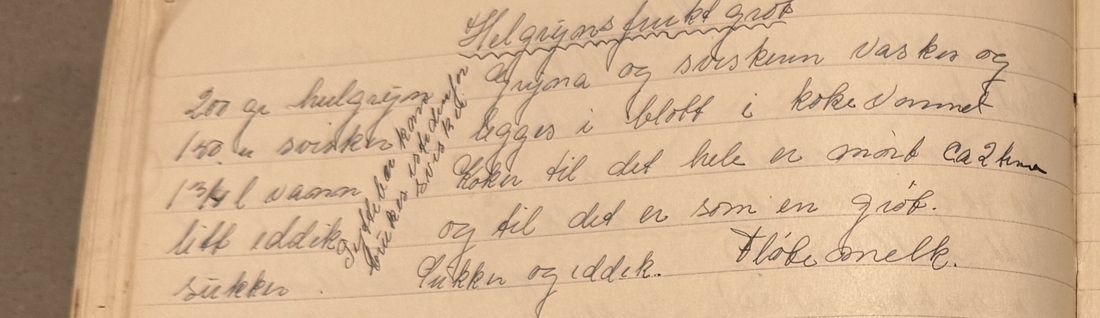 Helgryns frukt grøt
200 gr helgryn
150 " svisker
1 3/4 l vann
litt eddik
sukker.
Tyttebær kan
brukes istedenfor
svisker.
Gryna og sviskene vaskes og
legges i bløtt i kokevannet
Koker til det hele er mørt ca 2 timer
og til det er som en grøt.
Sukker og eddik. Fløte melk.